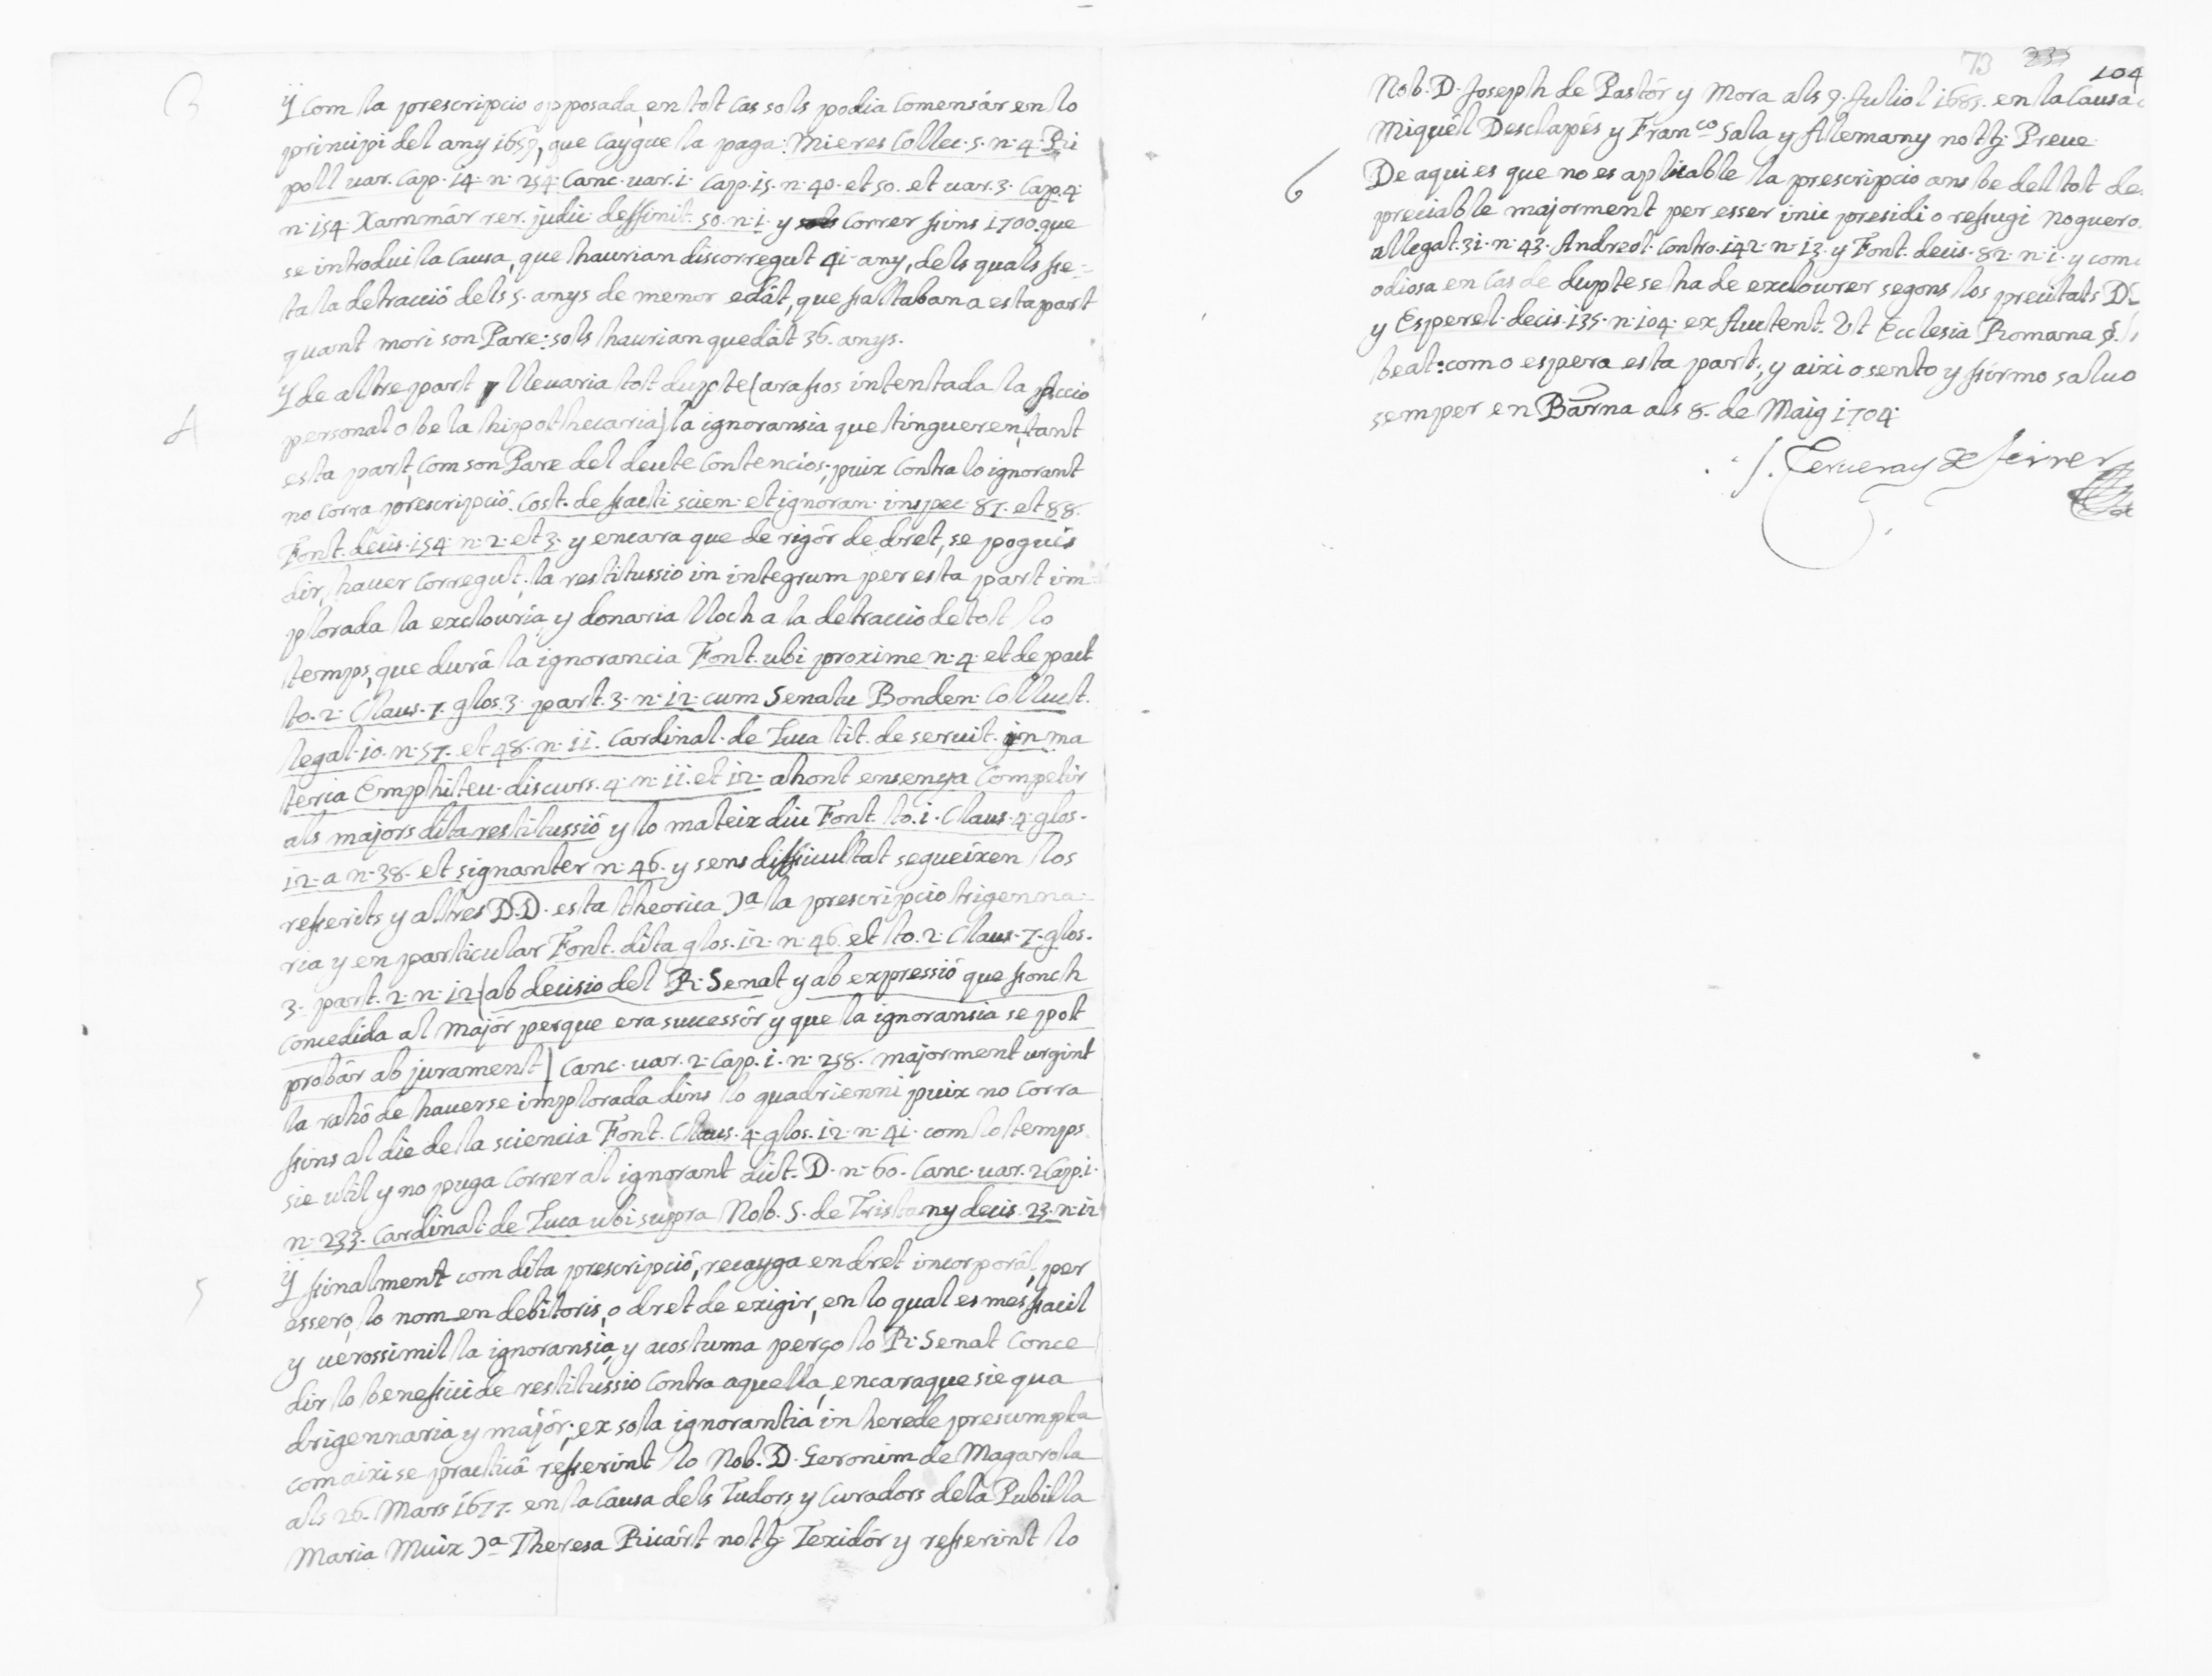 3
ÿ Com la prescripcio opposada, en tot cas sols podia Comensár en lo
principi del any 1659, que Caygue la paga: Mieres Collec. 5. n. 4. Ri
poll uar. Cap. 14. n. 254. Canc. uar. 1. Cap. 15. n. 40. et 50. et uar. 3. Cap. 4.
n. 154. Xammár rer. judic. deffinit. 50. n. 1. y Correr fins 1700. que
se introdui la Causa, que haurian discorregut 41. any, dels quals fe-
ta la detracció dels 5. anys de menor edát, que faltaban a esta part
quant mori son Pare: sols haurian quedát 36. anys.
4
Y de altre part y lleuaria tot dupte (ara fos intentada la accio
personal o be la hipothecaria) la ignoransia que tingueren, tant
esta part, Com son Pare del deute Contencios; puix Contra lo ignorant
no Corra prescripció. Cost. de facti scien. et ignoran. inspec. 87. et 88.
Font. decis. 154. n. 2. et 3. y encara que de rigór de dret, se pogués
dir, hauer Corregut; la restitussio in integrum per esta part im-
plorada la exclouria y donaria lloch a la detraccio de tot lo
temps, que durá la ignorancia Font. ubi proxime n. 4. et de pact.
to. 2. Claus. 7. glos. 3. part. 3. n. 12. cum Senatu Bonden. Colluct.
legal. 10. n. 57. et 48. n. 11. Cardinal. de Luca tit. de seruit. in ma
teria Emphiteu. discurs. 4. n. 11. et 12. ahont ensenya Competir
als majors dita restitussió y lo mateix diu Font. to. 1. Claus. 4. glos.
12. a n. 38. et signanter n. 46. y sens difficultat segueixen los
referits y altres D.D. esta theorica Ja la prescripcio trigenna-
ria y en particular Font. dita glos. 12. n. 46. et to. 2. Claus. 7. glos.
3. part. 2. n. 12. (ab decisio del R. Senat y ab expressió que fonch
Concedida al Majór perque era successór y que la ignoransia se pot
probár ab jurament) Canc. uar. 2. Cap. 1. n. 258. majorment urgint
la rahó de hauerse implorada dins lo quadrienni puix no Corra
fins al die de la sciencia Font. Claus. 4. glos. 12. n. 41. com lo temps
sie util y no puga Correr al ignorant dict. D. n. 60. Canc. uar. 2 Cap. 1.
n. 233. Cardinal. de Luca ubi supra Nob. S. de Tristany decis. 23. n. 12
5
ÿ finalment com dita prescripció, recayga en dret incorporál, per
essero, lo nomen debitoris, o dret de exigir, en lo qual es mes facil
y uerossimil la ignoransia, y acostuma perço lo R. Senat Conce
dir lo benefici de restitussio Contra aquella, encaraque sie qua
drigennaria y majór; ex sola ignorantia in herede presumpta
com aixi se practicá referint lo Nob. D. Geronim de Magarola
als 26. Mars 1677. en la Causa dels Tudors y Curadors dela Pubilla
Maria Muix Ja Theresa Ricárt nott. Texidór y referint lo
73
104
Nob. D. Joseph de Pastór y Mora als 9. Juliol 1685. en la Causa
Miquél Desclapés y Franco Sala y Alemany nott. Preue.
6
De aqui es que no es aplicable la prescripcio ans be del tot de
preciable majorment per esser inic presidi o refugi Noguero.
allegat. 31. n. 43. Andreol. Contro. 142. n. 13. y Font. decis. 82. n. 1. y com
odiosa en Cas de dupte se ha de exclourer segons los precitats D
y Esperel. decis. 135. n. 104. ex Autent. Ut Ecclesia Romana §.
beat: com o espera esta part; y aixi o sento y firmo saluo
semper en Barna als 8. de Maig 1704.